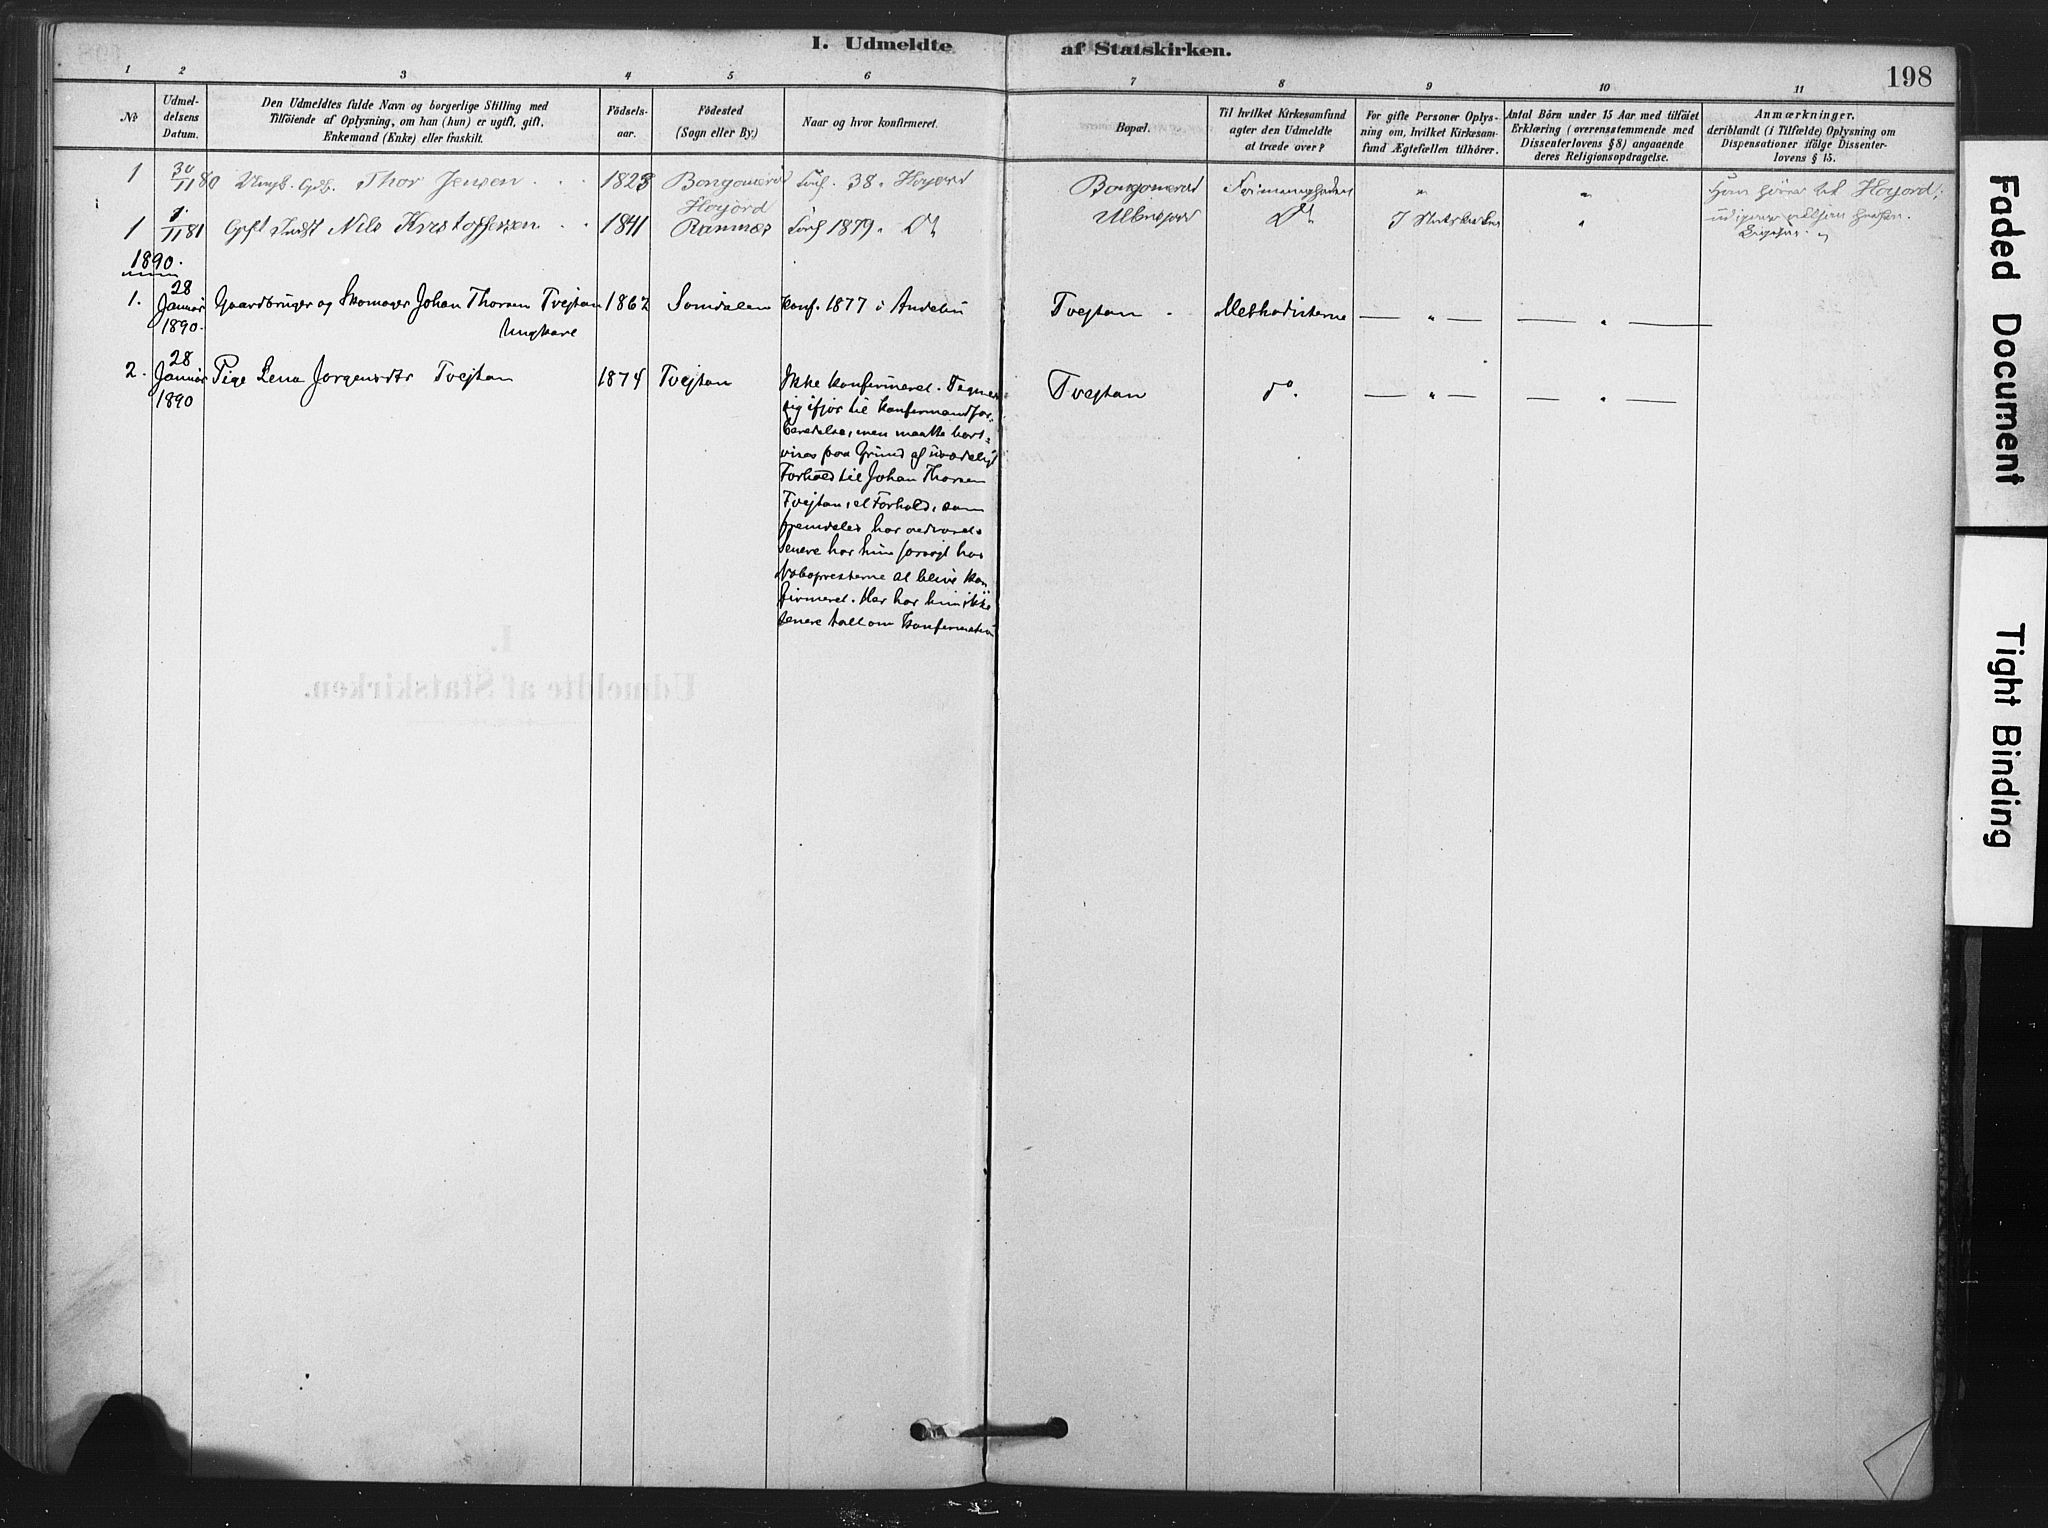 I. Udmeldte af Statskirken.
198
1 2 3 4 5 6 7 8 9 10 11
No
Udmel-
delsens
Datum.
Den Udmeldtes fulde Navn og borgerlige Stilling med
Tilföiende af Oplysning, om han (hun) er ugift, gift,
Enkemand (Enke) eller fraskilt.
Födsels-
aar.
Födested
(Sogn eller By.)
Naar og hvor konfirmeret.
Bopæl.
Til hvilket Kirkesamfund
agter den Udmeldte
at træde over?
For gifte Personer Oplys-
ning om, hvilket Kirkesam-
fund Ægtefællen tilhörer.
Antal Börn under 15 Aar med tilföiet
Erklæring (overensstemmende med
Dissenterlovens § 8) angaaende
deres Religionsopdragelse.
Anmærkninger,
deriblandt (i Tilfælde) Oplysning om
Dispensationer ifölge Dissenter-
lovens § 15.
1 30/11 80 Thor Jensen 1823 38. Hoyord
Hoyord
1 1/11 81 Nils Kristoffersen 1841 Ramnæs 1879
1890.
1. 28 Januar 1890. Gaardbruger og Skomager Johan Thorsen Tvejtan 1862 konf. 1877 i Andebu Tvejtan Methodisterne — " — — " —
Ungkare
2. 28 Januar 1890 Pige Lena Jørgensdtr Tvejtan 1874 Tvejtan Ikke konfirmeret. Tvejtan do. — " — — " —
sig ifjor til konfirmandfor-
beredelse, men maatte bort-
vises paa Grund af
Forhold til Johan Thorsen
Tvejtan, et Forhold, som
fremdeles har vedvaret.
Senere har hun forsøgt hos
Nabopresterne at blive kon
firmeret. Her har hun ikke
senere talt om Konfirmation
I.
Udmeldte af Statskirken.
Faded Document
Tight Binding